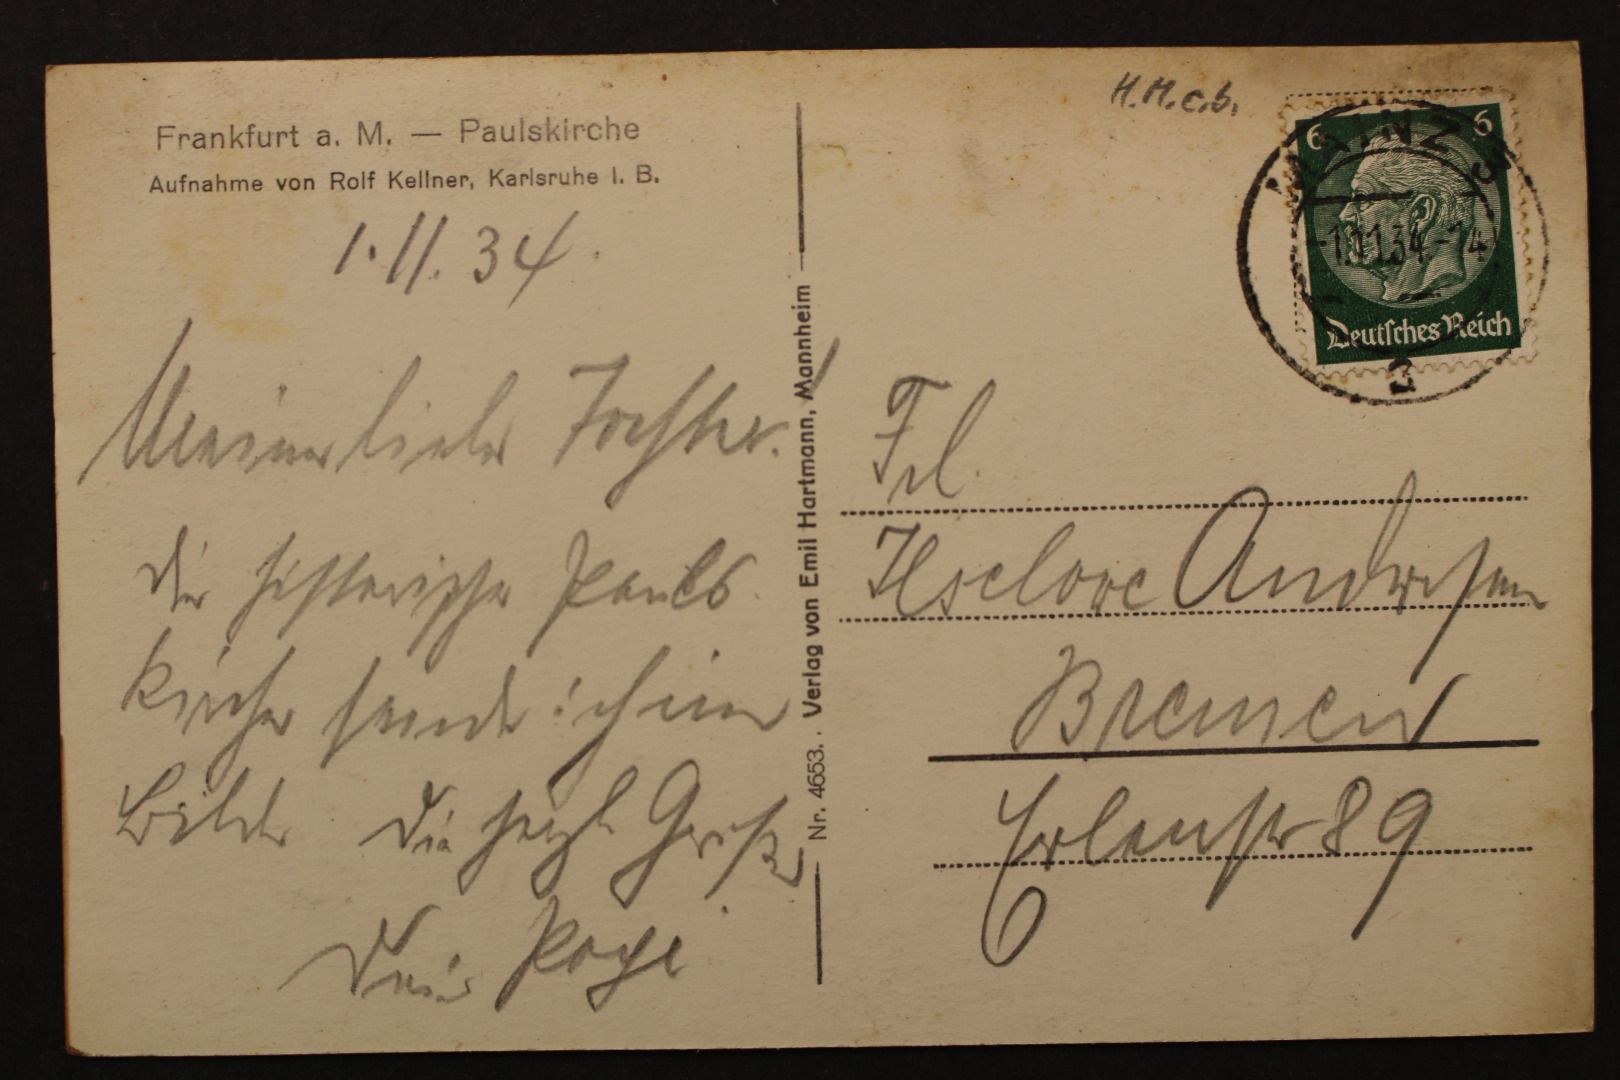 Frankfurt a. M. — Paulskirche
Aufnahme von Rolf Kellner, Karlsruhe i. B.
1.11.34.
Meiner lieben Tochter.
Die historische Pauls
kirche sende ich im
Bilde Die herzl Grüße
Dein
Nr. 4653. Verlag von Emil Hartmann, Mannheim
H.M.c.b.
6 6
Deutsches Reich
MAINZ 3
-1.11.34.-14
Frl.
Ilselore Andresen
Bremen
Erlenstr 89